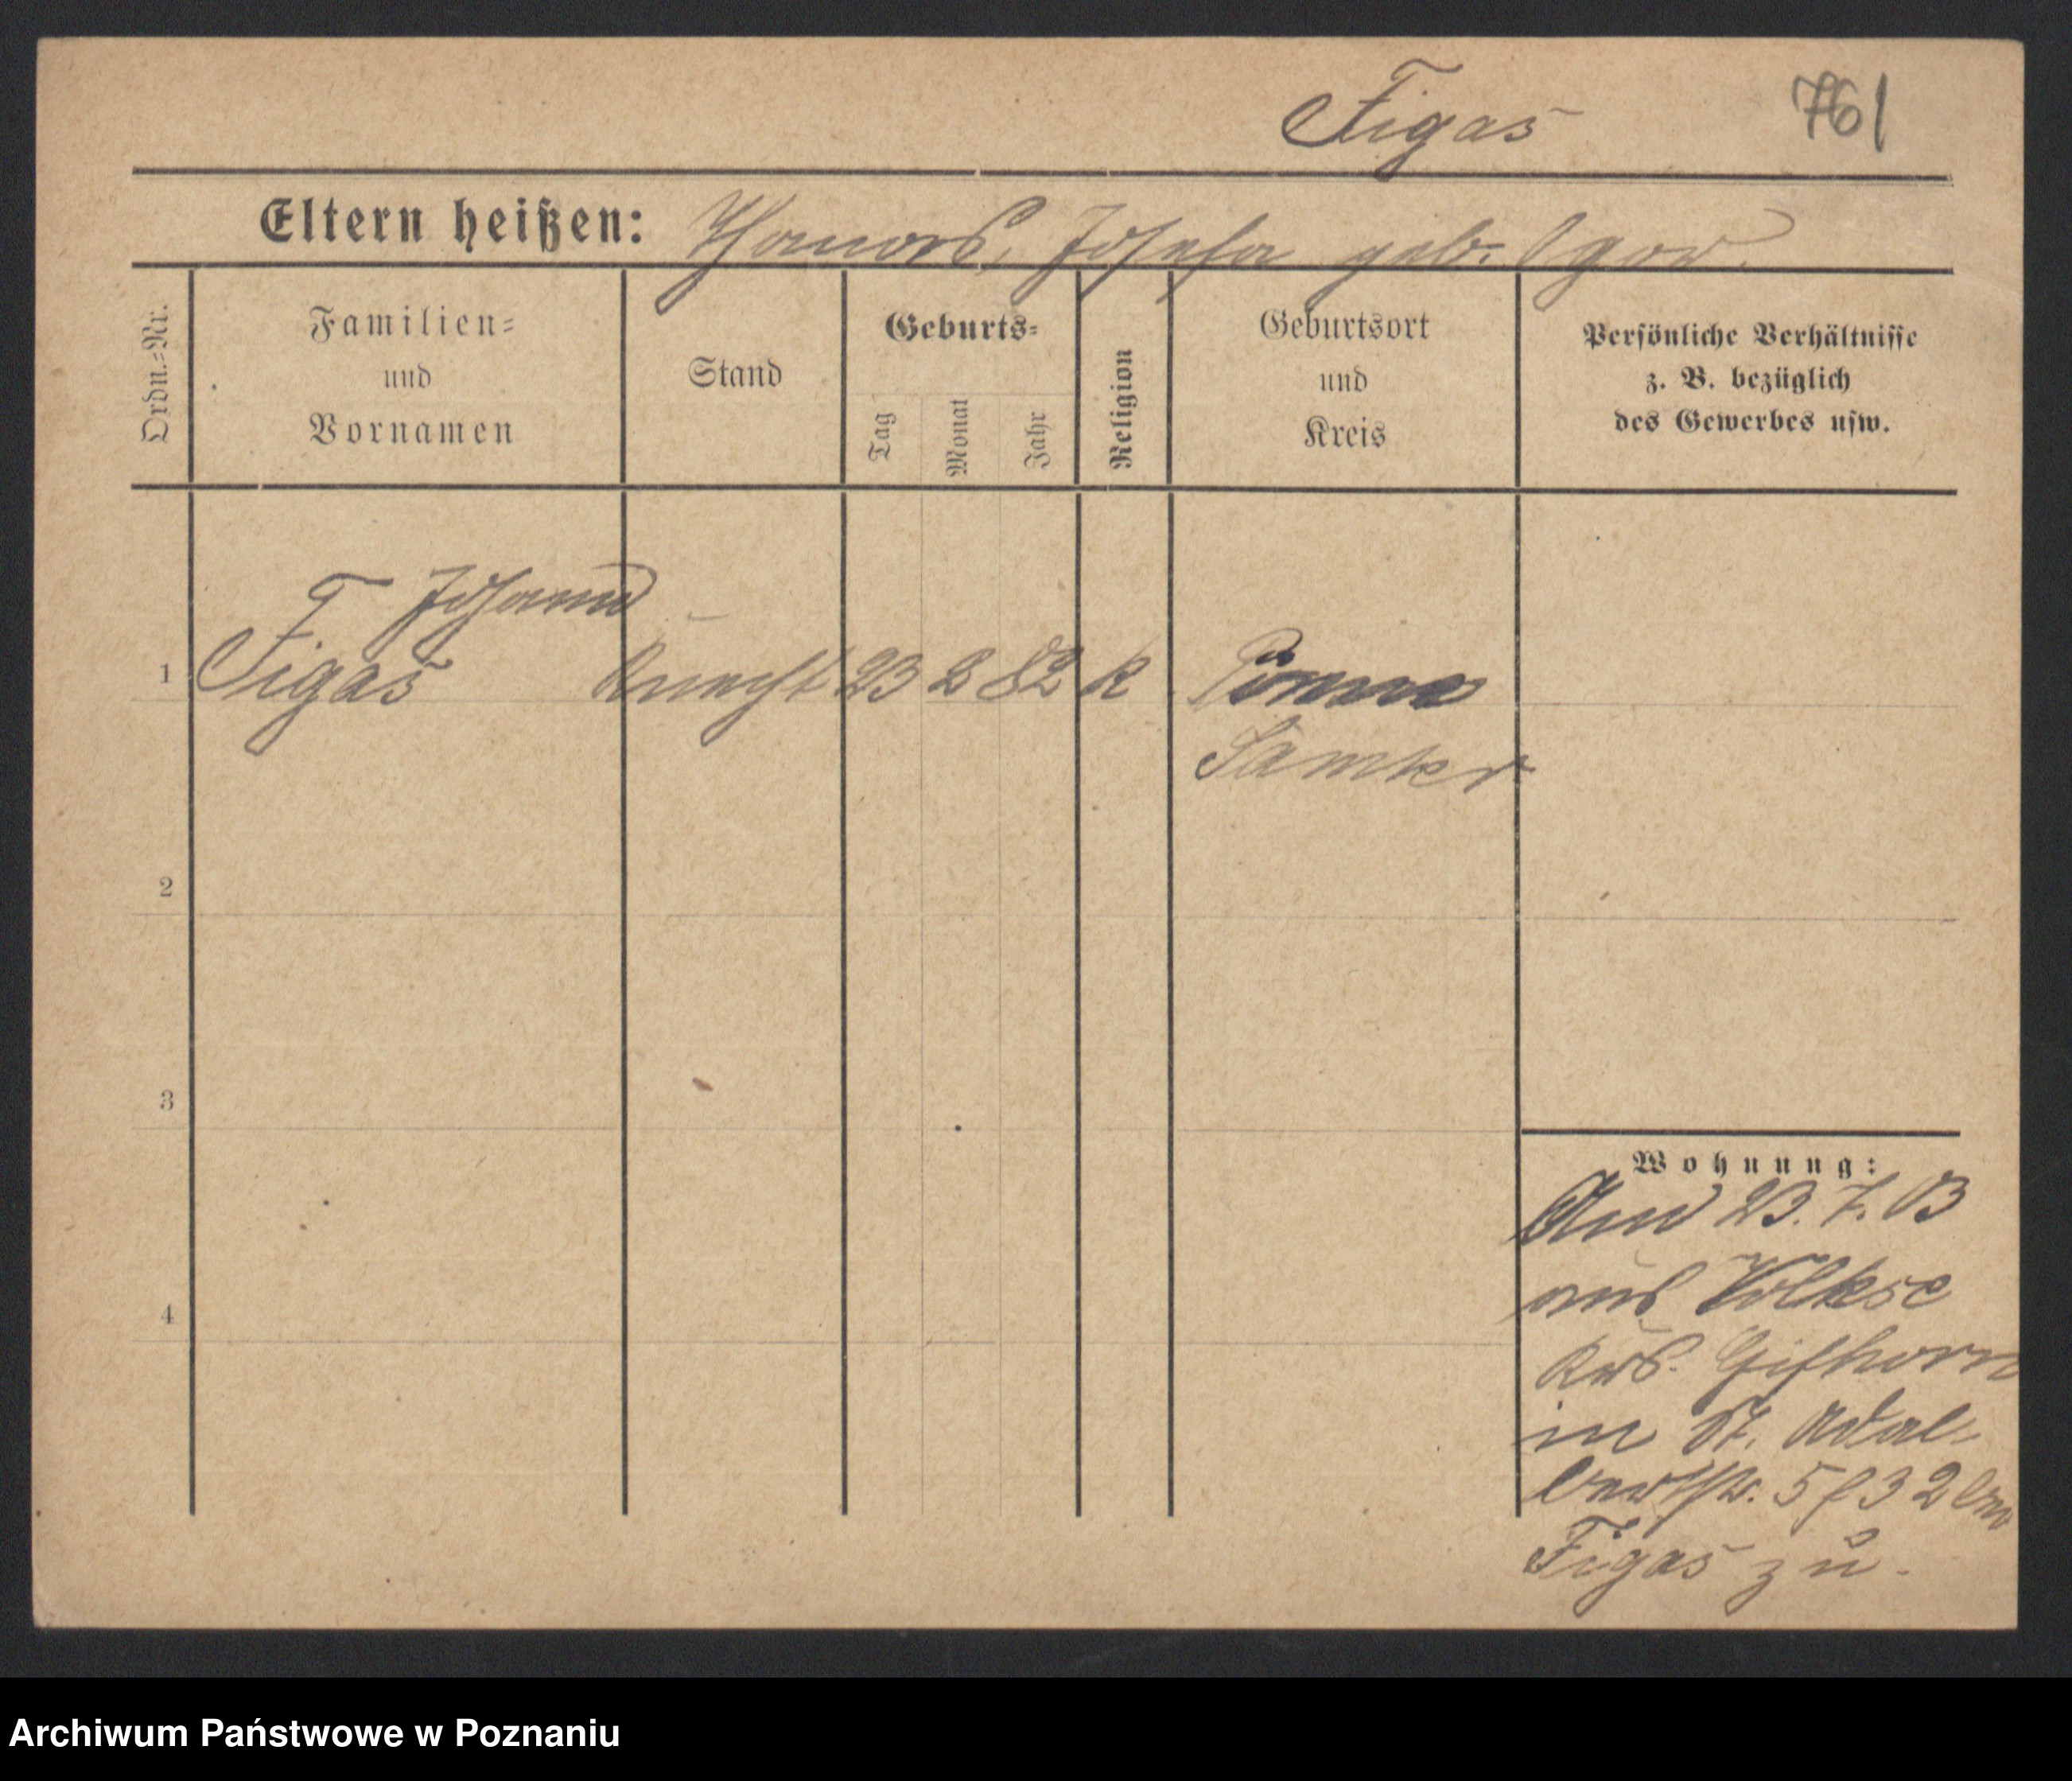 Figas 761
Eltern heißen: Thomas, Josefa geb.
Ordn.-Nr.
Familien-
und
Vornamen
Stand
Geburts-
Tag
Monat
Jahr
Religion
Geburtsort
und
Kreis
Persönliche Verhältnisse
z. B. bezüglich
des Gewerbes usw.
Johann
1 Figas Knecht 23 2 82 k
Samter
2
3
4
Wohnung:
23. 7. 03
aus Volkse
Krs. Gifhorn
in St. Adal-
bertstr. 5 f 32 bei
Figas zu.
Archiwum Państwowe w Poznaniu